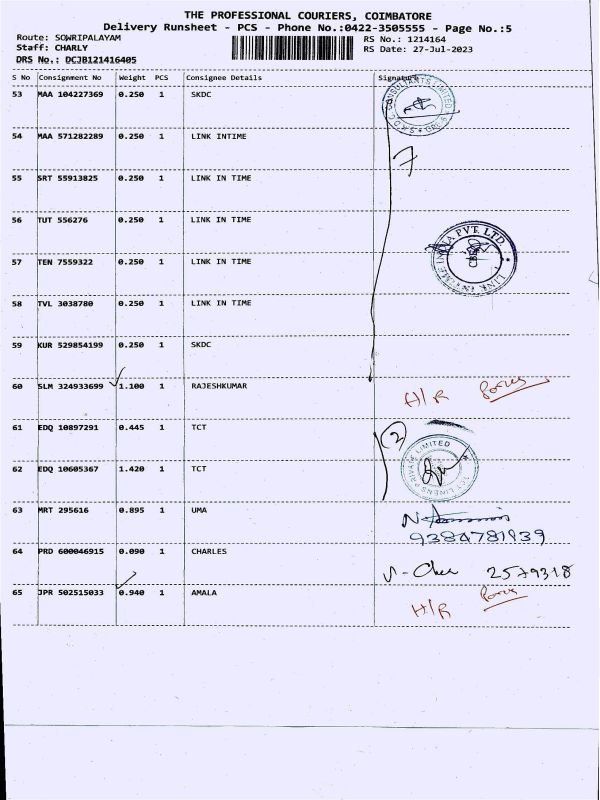 THE PROFESSIONAL COURIERS, COIMBATORE
Delivery Runsheet - PCS - Phone No.:0422-3505555 - Page No.:5
Route: SOWRIPALAYAM
RS No.: 1214164
Staff: CHARLY
RS Date: 27-Jul-2023
DRS No.: DCJB121416405
S No Consignment No Weight PCS Consignee Details Signature
53 MAA 104227369 0.250 1 SKDC
54 MAA 571282289 0.250 1 LINK INTIME
7
55 SRT 55913825 0.250 1 LINK IN TIME
56 TUT 556276 0.250 1 LINK IN TIME
57 TEN 7559322 0.250 1 LINK IN TIME
LINK IN TIME INDIA PVT. LTD.
58 TVL 3038780 0.250 1 LINK IN TIME
59 KUR 529854199 0.250 1 SKDC
60 SLM 324933699 1.100 1 RAJESHKUMAR
H/R
61 EDQ 10897291 0.445 1 TCT
2
62 EDQ 10605367 1.420 1 TCT
TCT LINENS PRIVATE LIMITED
63 MRT 295616 0.895 1 UMA
9384781939
64 PRD 600046915 0.090 1 CHARLES
2579318
65 JPR 502515033 0.940 1 AMALA
H/R